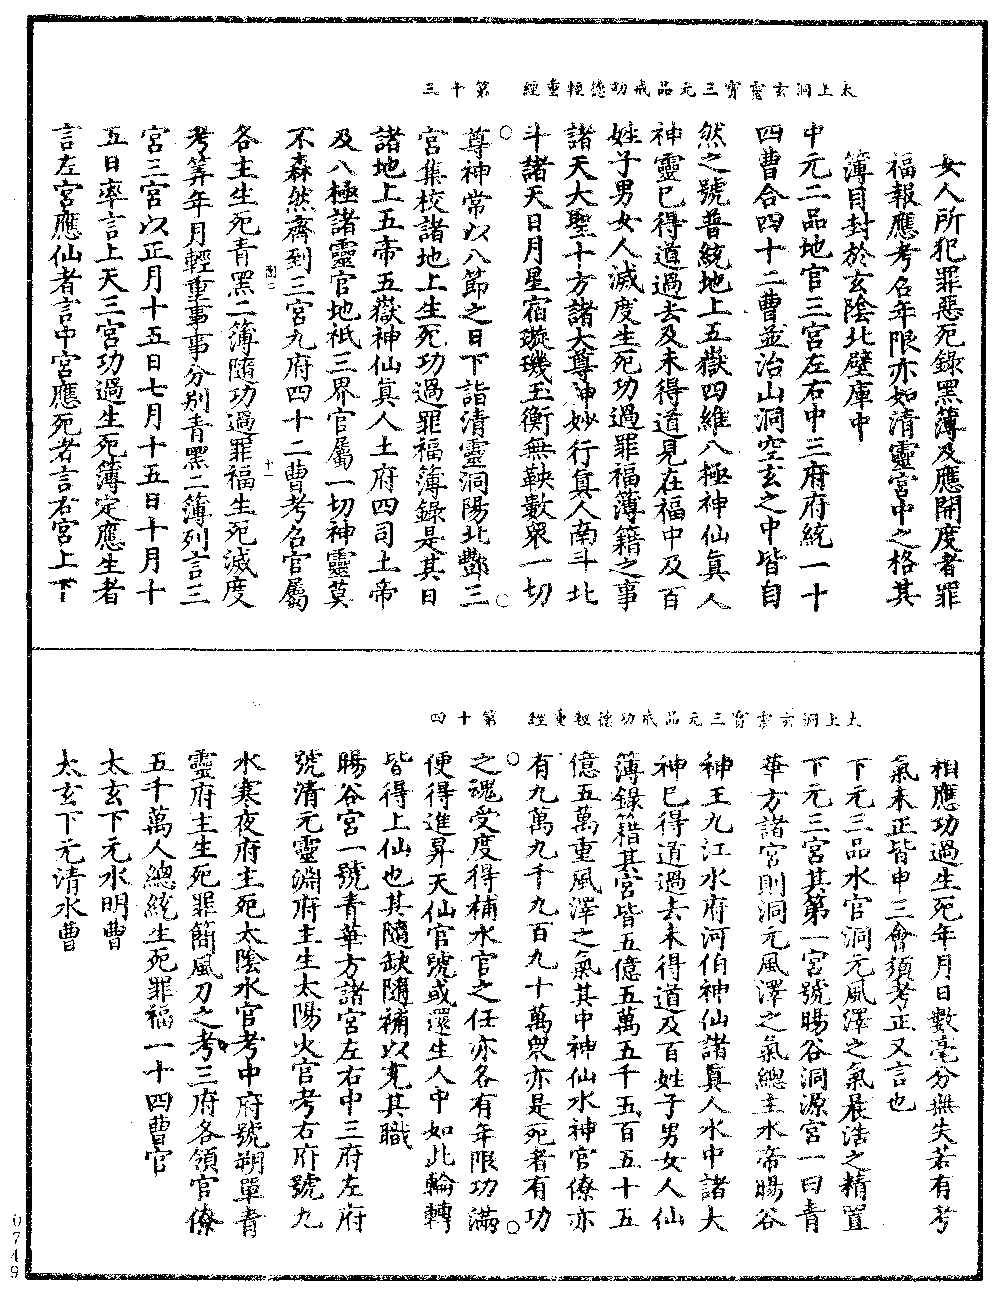 太上洞玄靈寶三元品戒功德輕重經　第十三
女人所犯罪惡死錄黑簿及應開度者罪
福報應考名年限亦如清靈宮中之格其
簿目封於玄陰北壁庫中
中元二品地官三宮左右中三府府統一十
四曹合四十二曹並治山洞空玄之中皆自
然之號普統地上五嶽四維八極神仙真人
神靈已得道過去及未得道見在福中及百
姓子男女人滅度生死功過罪福簿籍之事
諸天大聖十方諸大尊神妙行真人南斗北
斗諸天日月星宿璇璣玉衡無鞅數衆一切
尊神常以八節之日下詣清靈洞陽北酆三
宮集校諸地上生死功過罪福簿錄是其日
諸地上五帝五嶽神仙真人土府四司土帝
及八極諸靈官地祇三界官屬一切神靈莫
不森然齊到三宮九府四十二曹考名官屬
各主生死青黑二簿隨功過罪福生死滅度
考筭年月輕重事事分別青黑二簿列言三
宮三宮以正月十五日七月十五日十月十
五日率言上天三宮功過生死簿定應生者
言左宮應仙者言中宮應死者言右宮上下
太上洞玄靈寶三元品戒功德輕重經　第十四
相應功過生死年月日數毫分無失若有考
氣未正皆申三會須考正又言也
下元三品水官洞元風澤之氣晨浩之精置
下元三宮其第一宮號暘谷洞源宮一曰青
華方諸宮則洞元風澤之氣總主水帝暘谷
神王九江水府河伯神仙諸真人水中諸大
神已得道過去未得道及百姓子男女人仙
簿錄籍其宮皆五億五萬五千五百五十五
億五萬重風澤之氣其中神仙水神官僚亦
有九萬九千九百九十萬衆亦是死者有功
之魂受度得補水官之任亦各有年限功滿
便得進昇天仙官號或還生人中如此輪轉
皆得上仙也其隨缺隨補以充其職
暘谷宮一號青華方諸宮左右中三府左府
號清元靈淵府主生太陽火官考右府號九
水寒夜府主死太陰水官考中府號朔單青
靈府主生死罪簡風刀之考三府各領官僚
五千萬人總統生死罪福一十四曹官
太玄下元水明曹
太玄下元清水曹
0749